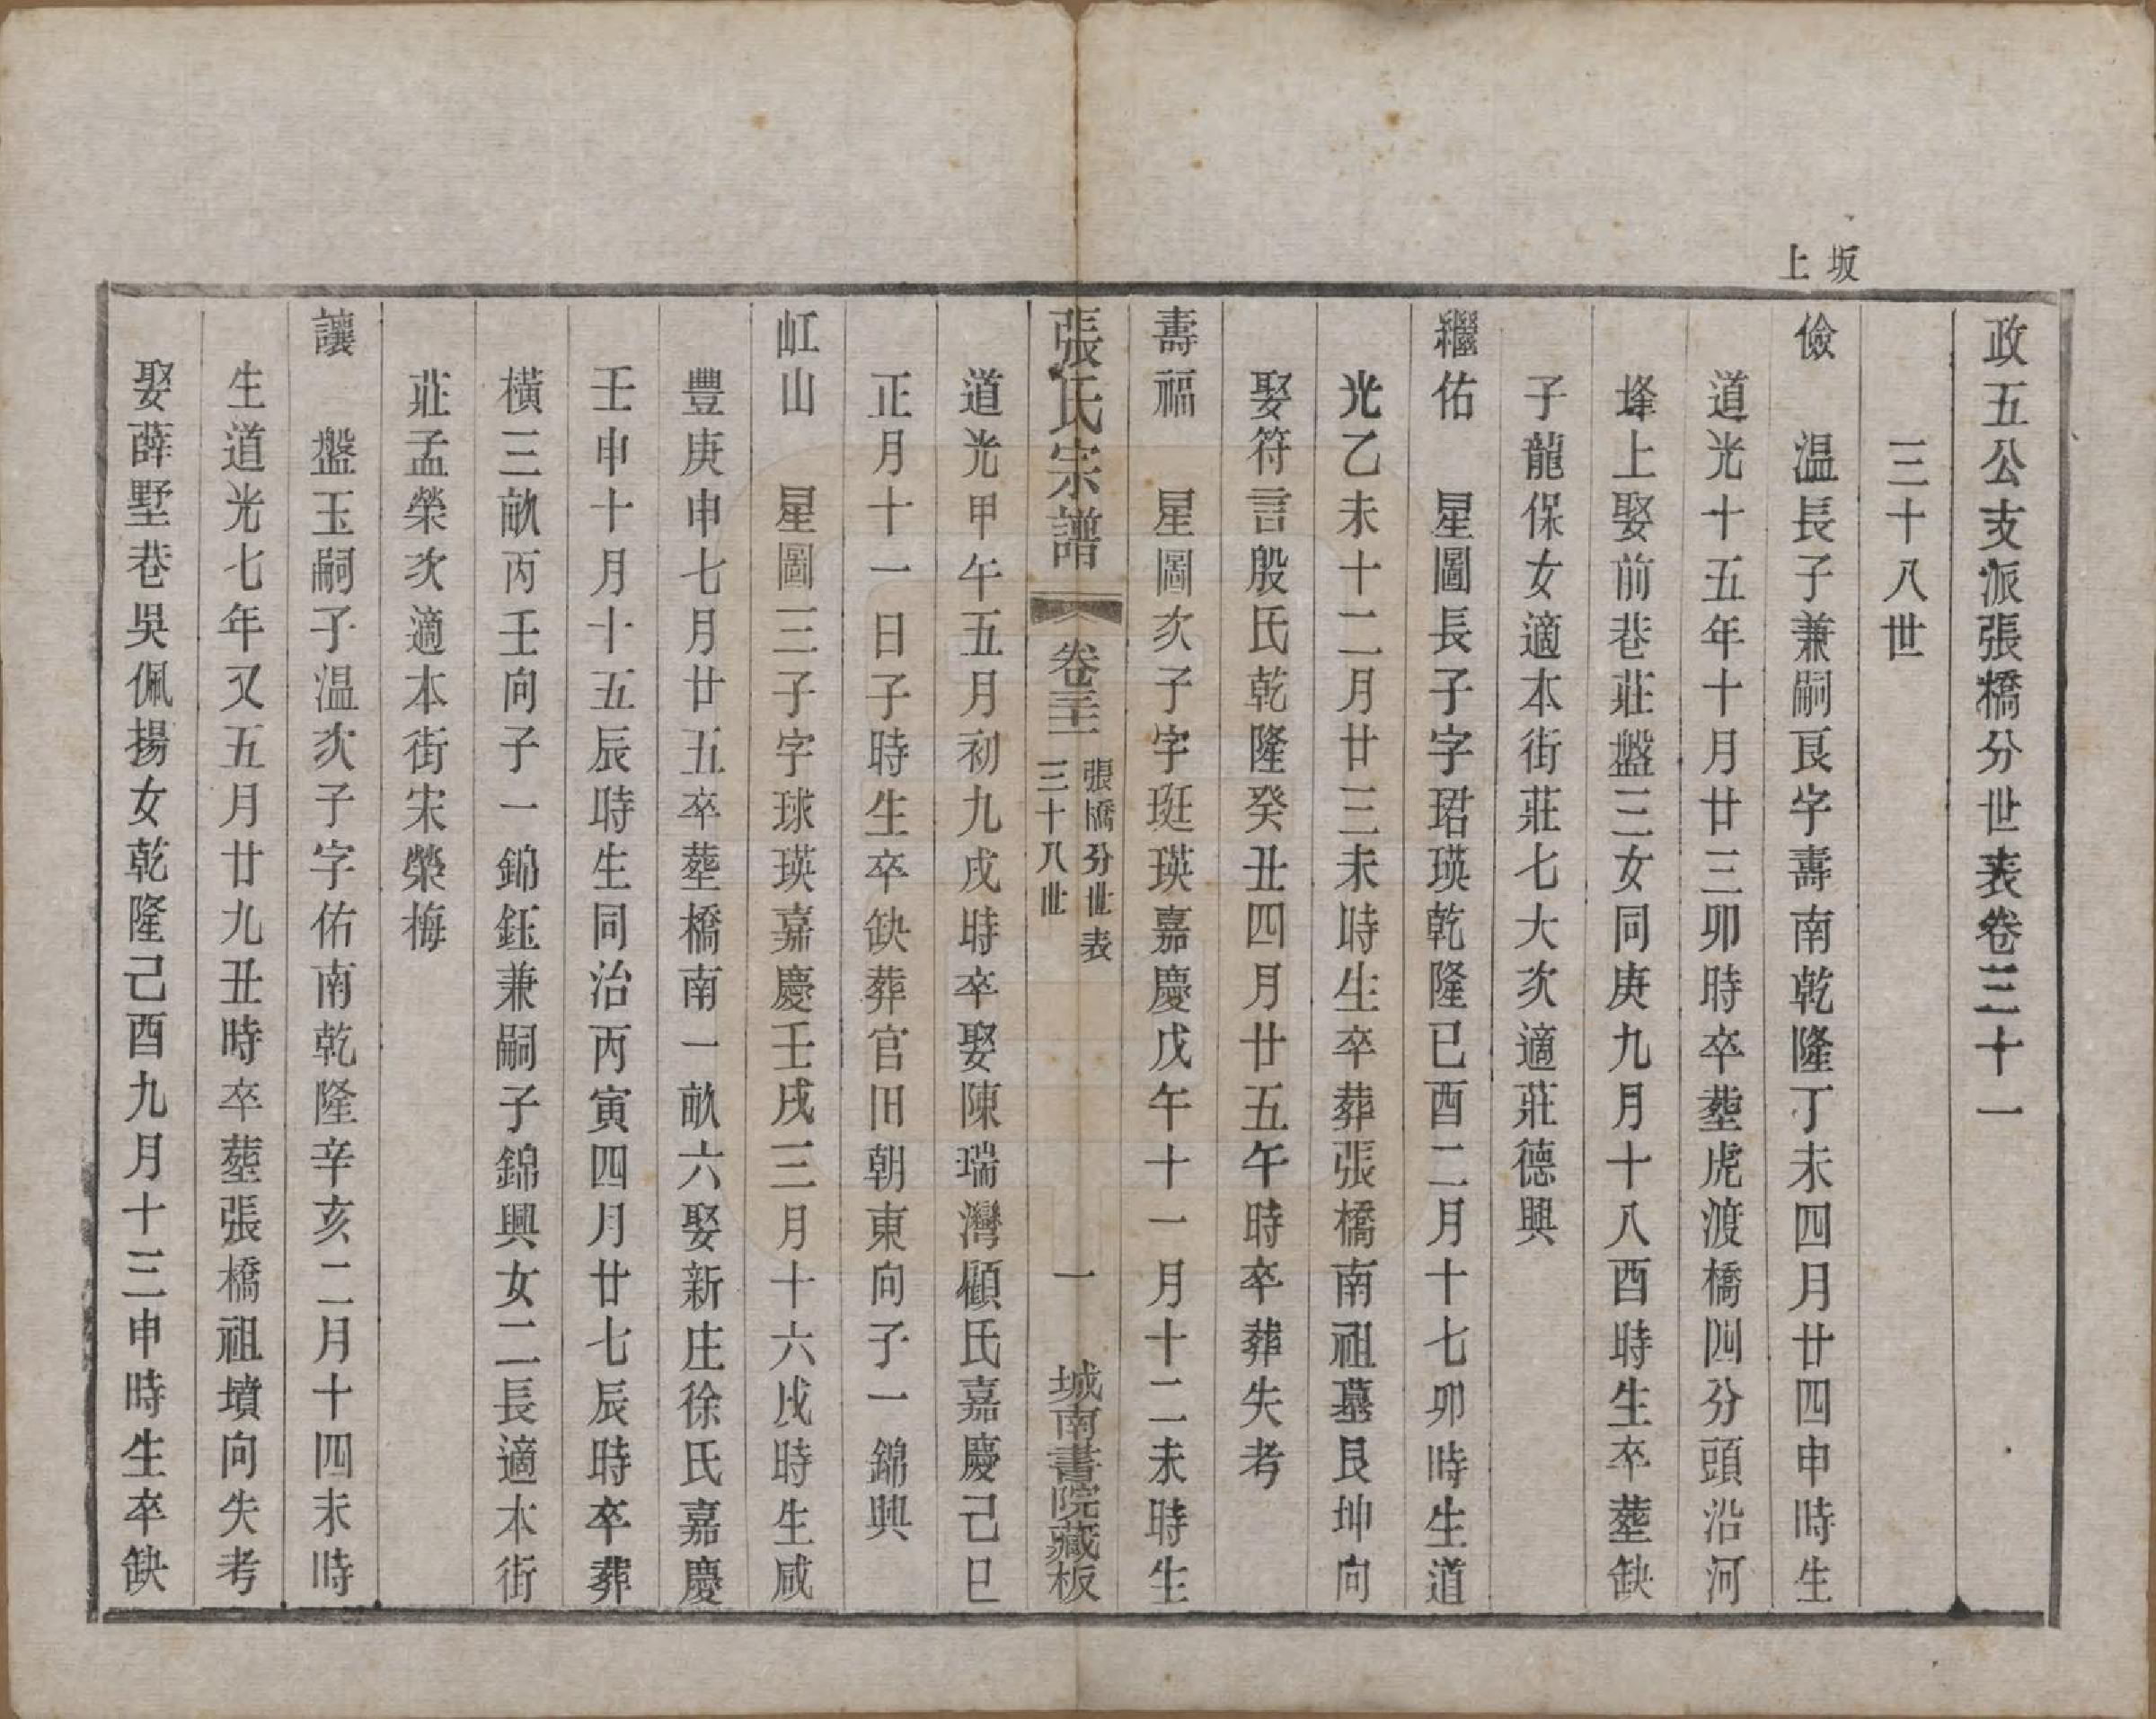 坂上
政五公支派張橋分世表卷三十一
三十八世
儉　温長子兼嗣艮字壽南乾隆丁未四月廿四申時生
道光十五年十月廿三卯時卒塟虎渡橋四分頭沿河
埄上娶前巷莊盤三女同庚九月十八酉時生卒塟缺
子龍保女適本街莊七大次適莊德興
繼佑　星圖長子字珺瑛乾隆已酉二月十七卯時生道
光乙未十二月廿三未時生卒葬張橋南祖墓艮坤向
娶符言殷氏乾隆癸丑四月廿五午時卒葬失考
壽福　星圖次子字珽瑛嘉慶戊午十一月十二未時生
張氏宗譜　卷三十一　張橋分世表　三十八世　一　城南書院藏板
道光甲午五月初九戌時卒娶陳瑞灣顧氏嘉慶己巳
正月十一日子時生卒缺葬官田朝東向子一錦興
虹山　星圖三子字球瑛嘉慶壬戌三月十六戌時生咸
豐庚申七月廿五卒塟橋南一畝六娶新庄徐氏嘉慶
壬申十月十五辰時生同治丙寅四月廿七辰時卒葬
橫三畝丙壬向子一錦鈺兼嗣子錦興女二長適本街
莊孟榮次適本街宋榮梅
讓　盤玉嗣子温次子字佑南乾隆辛亥二月十四未時
生道光七年又五月廿九丑時卒塟張橋祖墳向失考
娶薛墅巷吳佩揚女乾隆己酉九月十三申時生卒缺